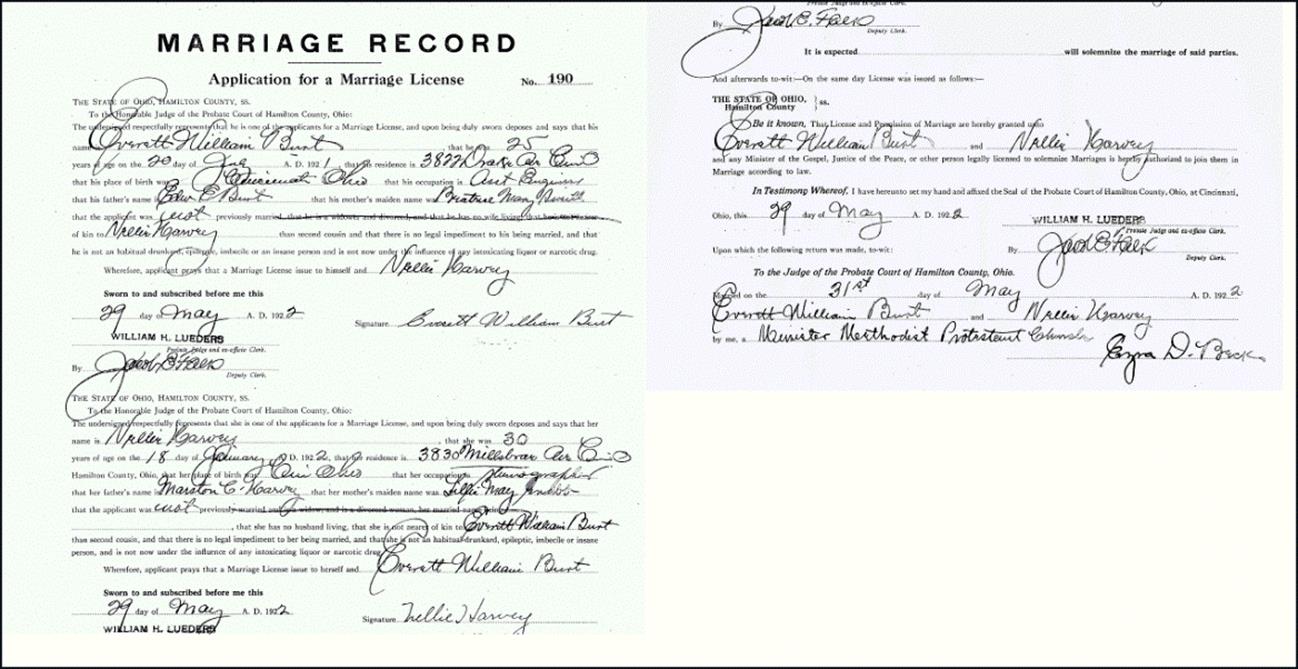 MARRIAGE RECORD
Application for a Marriage License No. 190
THE STATE OF OHIO, HAMILTON COUNTY, SS.
To the Honorable Judge of the Probate Court of Hamilton County, Ohio:
The undersigned respectfully represents that he is one of the applicants for a Marriage License, and upon being duly sworn deposes and says that his
name is Everett William Burt that he was 25
years of age on the 20 day of A. D. 192 1, that his residence is 3822 Drake Av
that his place of birth was Cincinnati Ohio that his occupation is Asst Engineer
that his father's name is Edw E Burt that his mother's maiden name was Beatrice Mary
that the applicant was not previously married, that he is a widower and divorced, and that he has no wife living, that
of kin to Nellie Harvey than second cousin and that there is no legal impediment to his being married, and that
he is not an habitual drunkard, epileptic, imbecile or an insane person and is not now under the influence of any intoxicating liquor or narcotic drug.
Wherefore, applicant prays that a Marriage License issue to himself and Nellie Harvey
Sworn to and subscribed before me this
29 day of May A. D. 192 2
Signature Everett William Burt
WILLIAM H. LUEDERS
Probate Judge and ex-officio Clerk.
By Jacob E. Falk
Deputy Clerk.
THE STATE OF OHIO, HAMILTON COUNTY, SS.
To the Honorable Judge of the Probate Court of Hamilton County, Ohio:
The undersigned respectfully represents that she is one of the applicants for a Marriage License, and upon being duly sworn deposes and says that her
name is Nellie Harvey, that she was 30
years of age on the 18 day of January A. D. 192 2, that her residence is 3830 Millsbrae Av
Hamilton County, Ohio, that her place of birth was Cin Ohio that her occupation is Stenographer
that her father's name is Marston C. Harvey that her mother's maiden name was May
that the applicant was not previously married and a widow, and is a divorced woman, her married name being
, that she has no husband living, that she is not nearer of kin to Everett William Burt
than second cousin, and that there is no legal impediment to her being married, and that she is not an habitual drunkard, epileptic, imbecile or insane
person, and is not now under the influence of any intoxicating liquor or narcotic drug.
Wherefore, applicant prays that a Marriage License issue to herself and Everett William Burt
Sworn to and subscribed before me this
29 day of May A. D. 192 2
Signature Nellie Harvey
WILLIAM H. LUEDERS
By Jacob E. Falk
Deputy Clerk.
It is expected will solemnize the marriage of said parties.
And afterwards to-wit:—On the same day License was issued as follows:—
THE STATE OF OHIO, Hamilton County } ss.
Be it known, That License and Permission of Marriage are hereby granted unto
Everett William Burt and Nellie Harvey
and any Minister of the Gospel, Justice of the Peace, or other person legally licensed to solemnize Marriages is hereby authorized to join them in
Marriage according to law.
In Testimony Whereof, I have hereunto set my hand and affixed the Seal of the Probate Court of Hamilton County, Ohio, at Cincinnati,
Ohio, this 29 day of May A. D. 192 2
WILLIAM H. LUEDERS
Probate Judge and ex-officio Clerk.
Upon which the following return was made, to-wit: By Jacob E. Falk
Deputy Clerk.
To the Judge of the Probate Court of Hamilton County, Ohio.
Married on the 31st day of May A. D. 192 2
Everett William Burt and Nellie Harvey
by me, a Minister Methodist Protestant Church
Ezra D. Beck